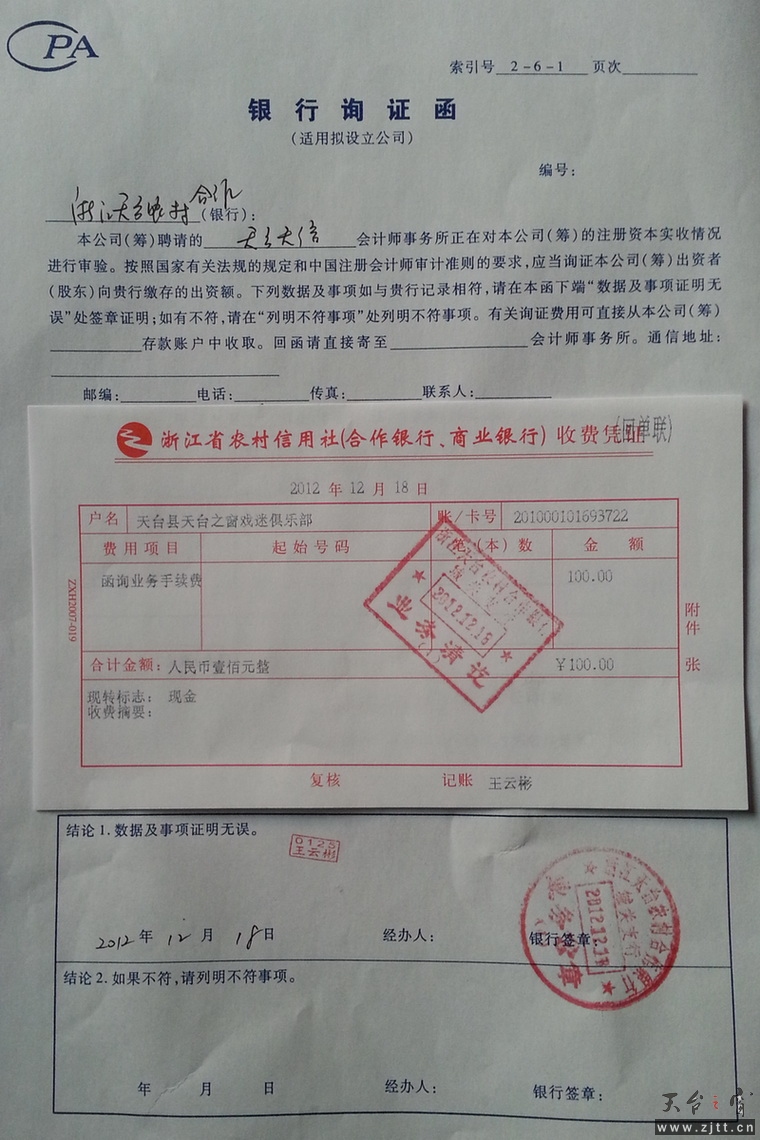 CPA
索引号 2-6-1 页次
银行询证函
(适用拟设立公司)
编号:
浙江天台农村合作(银行):
本公司(筹)聘请的 天台天信 会计师事务所正在对本公司(筹)的注册资本实收情况
进行审验。按照国家有关法规的规定和中国注册会计师审计准则的要求,应当询证本公司(筹)出资者
(股东)向贵行缴存的出资额。下列数据及事项如与贵行记录相符,请在本函下端“数据及事项证明无
误”处签章证明;如有不符,请在“列明不符事项”处列明不符事项。有关询证费用可直接从本公司(筹)
存款账户中收取。回函请直接寄至 会计师事务所。通信地址:
邮编: 电话: 传真: 联系人:
浙江省农村信用社(合作银行、商业银行) 收费凭证 (回单联)
2012 年 12 月 18 日
户名 天台县天台之窗戏迷俱乐部 账/卡号 201000101693722
费用项目 起始号码 (本)数 金额
函询业务手续费 100.00
合计金额: 人民币壹佰元整 ¥100.00
现转标志: 现金
收费摘要:
附件 张
ZXH2007-019
2012.12.18
业务清讫
复核 记账 王云彬
结论1.数据及事项证明无误。
0125
王云彬
2012 年 12 月 18 日 经办人: 银行签章:
浙江天台农村合作银行
2012.12.18
业务公章
结论2.如果不符,请列明不符事项。
年 月 日 经办人: 银行签章:
天台之窗
www.zjtt.cn